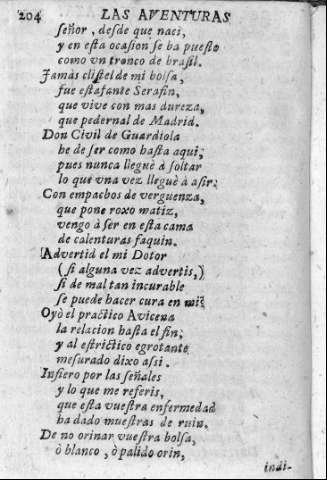 204 LAS AVENTURAS
ſeñor, deſde que naci,
y en eſta ocaſion ſe ha pueſto
como vn tronco de braſil.
Jamàs cliſtel de mi bolſa,
fue eſtafante Serafin,
que vive con mas dureza,
que pedernal de Madrid.
Don Civil de Guardiola
he de ſer como haſta aqui;
pues nunca lleguè à ſoltar
lo que vna vez lleguè à aſir;
Con empachos de verguenza,
que pone roxo matiz,
vengo à ſer en eſta cama
de calenturas faquin.
Advertid el mi Dotor
(ſi alguna vez advertis,)
ſi de mal tan incurable
ſe puede hacer cura en mi?
Oyò el practico Avicena
la relacion haſta el fin;
y al eſtrictico egrotante
meſurado dixo aſsi.
Infiero por las ſeñales
y lo que me referis,
que eſta vueſtra enfermedad
ha dado mueſtras de ruin.
De no orinar vueſtra bolſa,
ò blanco, ò palido orin,
indi-